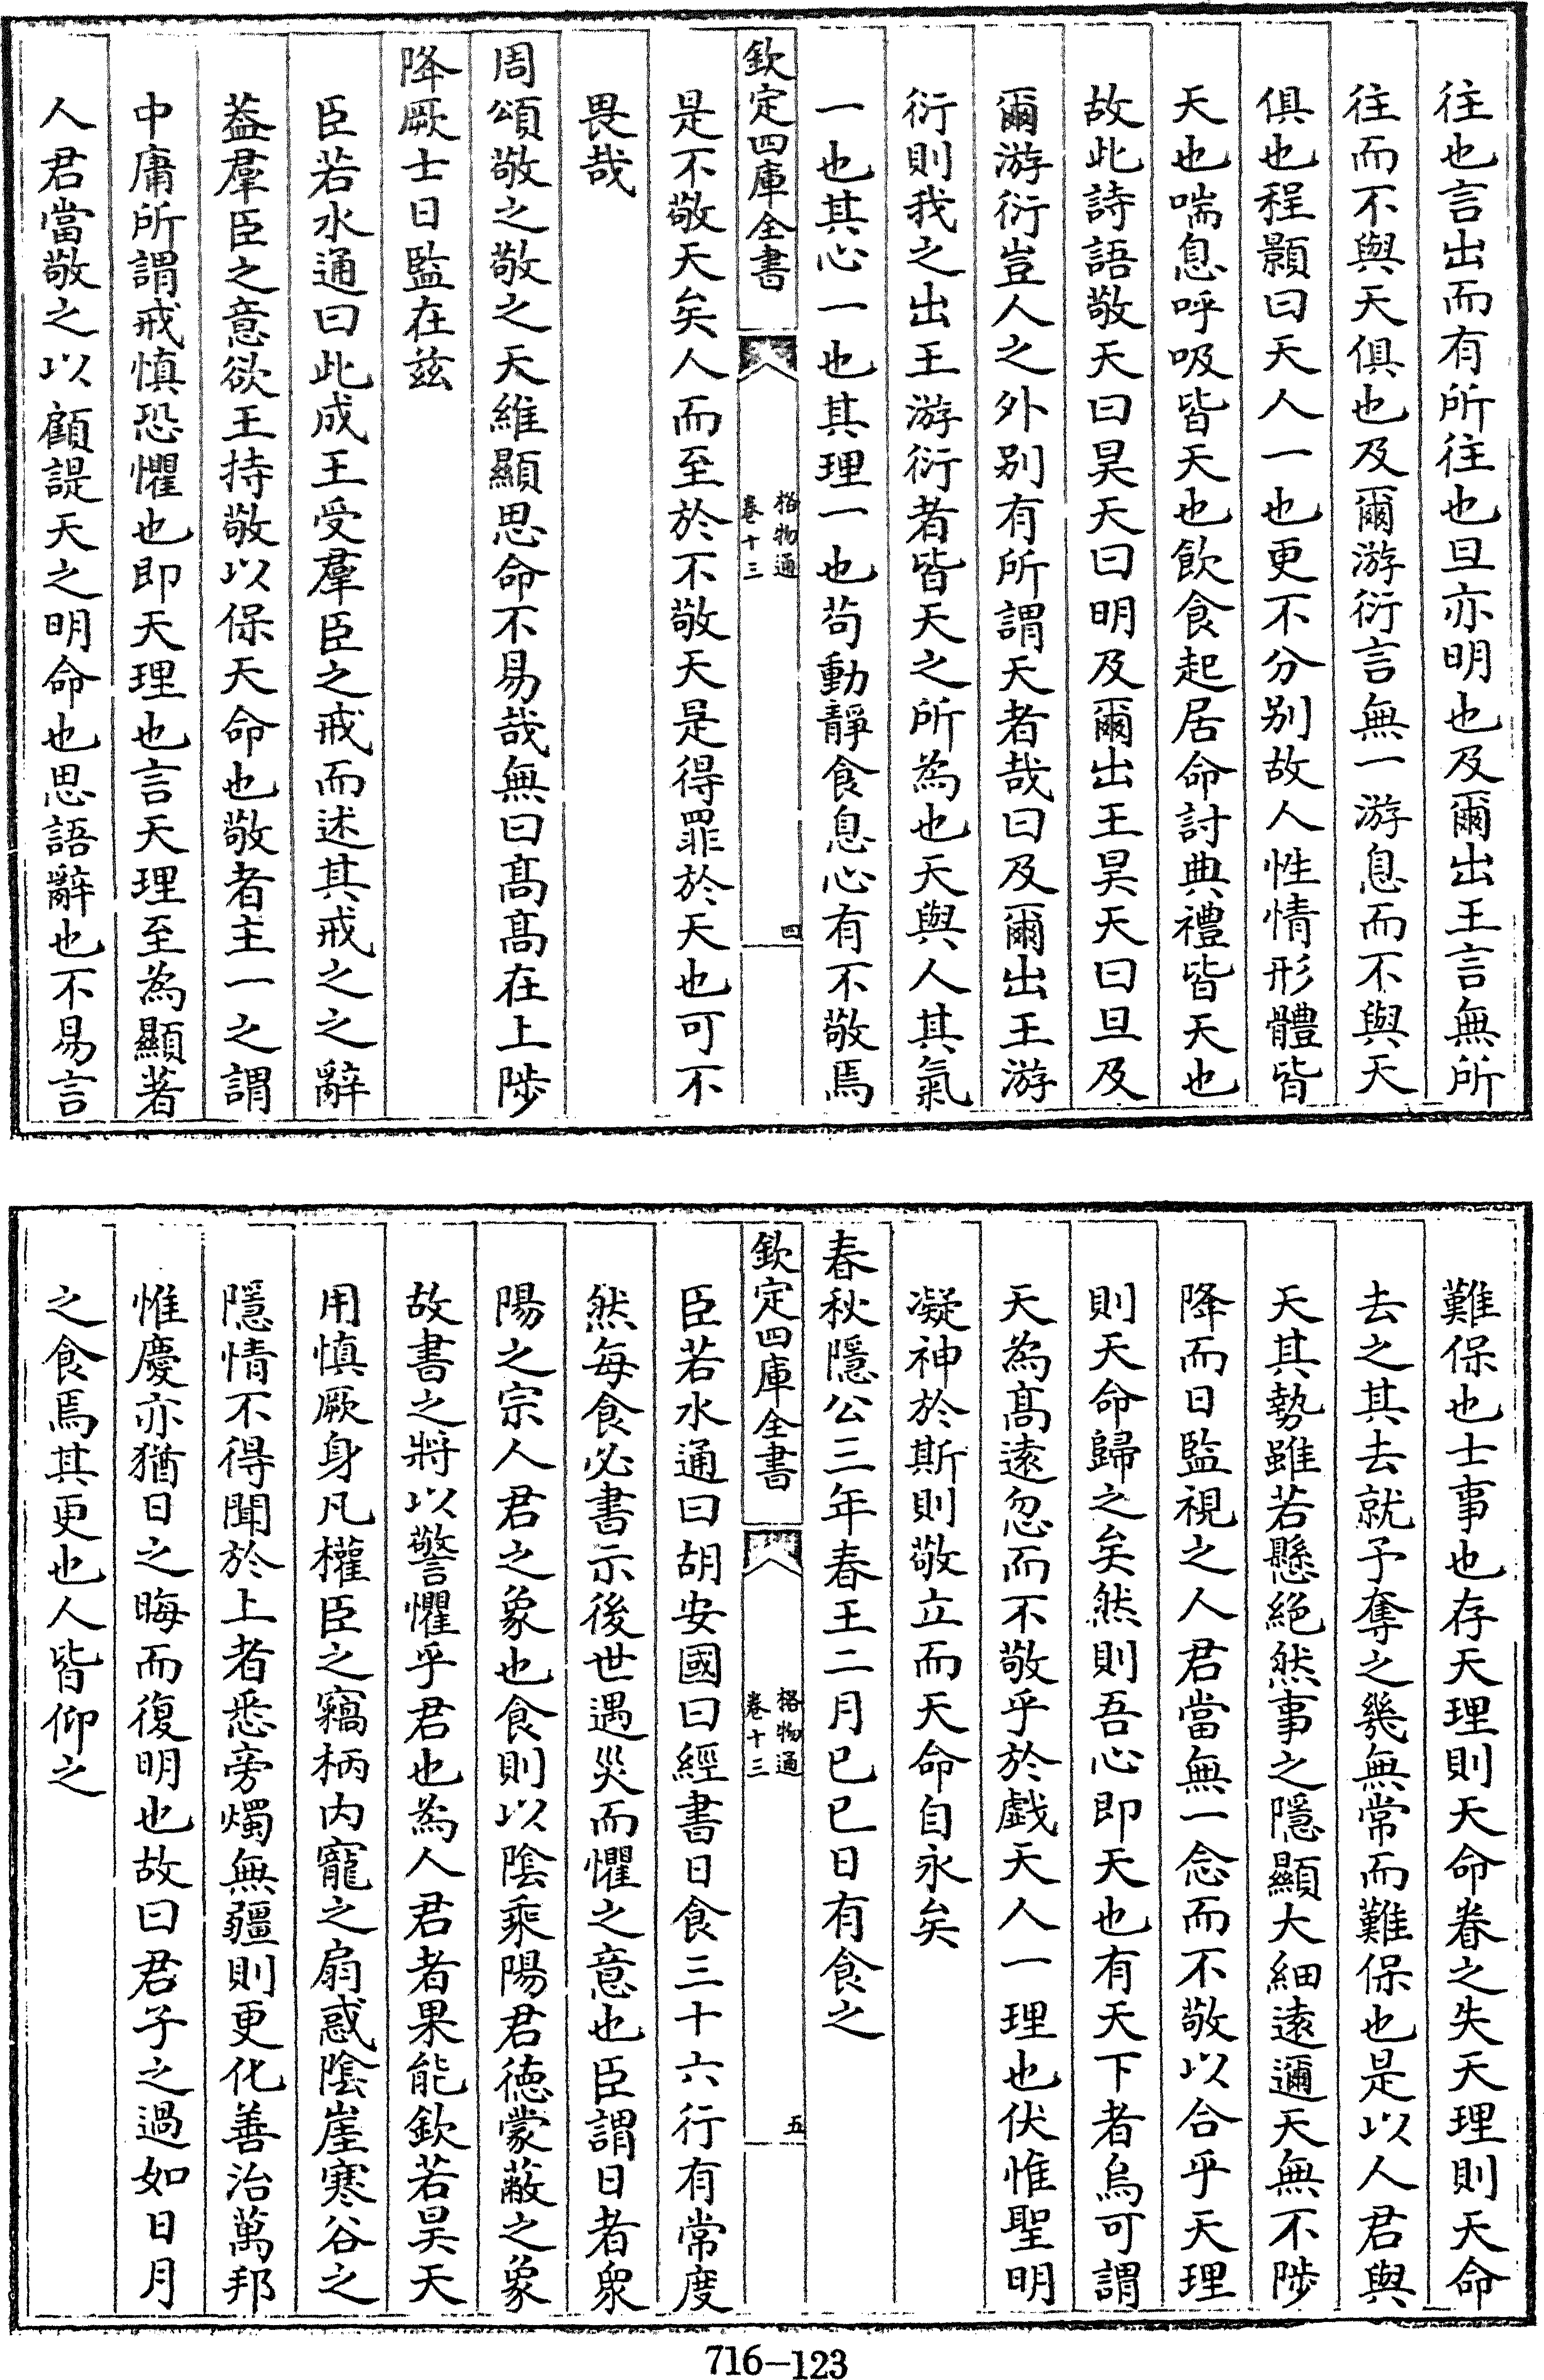 往也言出而有所往也旦亦明也及爾出王言無所
往而不與天俱也及爾游衍言無一游息而不與天
俱也程顥曰天人一也更不分别故人性情形體皆
天也喘息呼吸皆天也飲食起居命討典禮皆天也
故此詩語敬天曰昊天曰明及爾出王昊天曰旦及
爾游衍豈人之外别有所謂天者哉曰及爾出王游
衍則我之出王游衍者皆天之所為也天與人其氣
一也其心一一也其理一也苟動靜食息心有不敬焉
欽定四庫全書
格物通
卷十三
四
是不敬天矣人而至於不敬天是得罪於天也可不
畏哉
周頌敬之敬之天維顯思命不易哉無曰髙髙在上陟
降厥士日監在兹
臣若水通曰此成王受羣臣之戒而述其戒之之辭
葢羣臣之意欲王持敬以保天命也敬者主一之謂
中庸所謂戒慎恐懼也即天理也言天理至為顯著
人君當敬之以顧諟天之明命也思語辭也不易言
難保也士事也存天理則天命眷之失天理則天命
去之其去就予奪之幾無常而難保也是以人君與
天其勢雖若懸絶然事之隱顯大細遠邇天無不陟
降而日監視之人君當無一念而不敬以合乎天理
則天命歸之矣然則吾心即天也有天下者烏可謂
天為髙遠忽而不敬乎於戯天人一理也伏惟聖明
凝神於斯則敬立而天命自永矣
春秋隱公三年春王二月已巳日有食之
欽定四庫全書
格物通
卷十三
五
臣若水通曰胡安國曰經書日食三十六行有常度
然每食必書示後世遇災而懼之意也臣謂日者衆
陽之宗人君之象也食則以隂乘陽君徳蒙蔽之象
故書之將以警懼乎君也為人君者果能欽若昊天
用慎厥身凡權臣之竊柄内寵之扇惑隂崖寒谷之
隱情不得聞於上者悉旁燭無疆則更化善治萬邦
惟慶亦猶日之晦而復明也故曰君子之過如日月
之食焉其更也人皆仰之
716-123